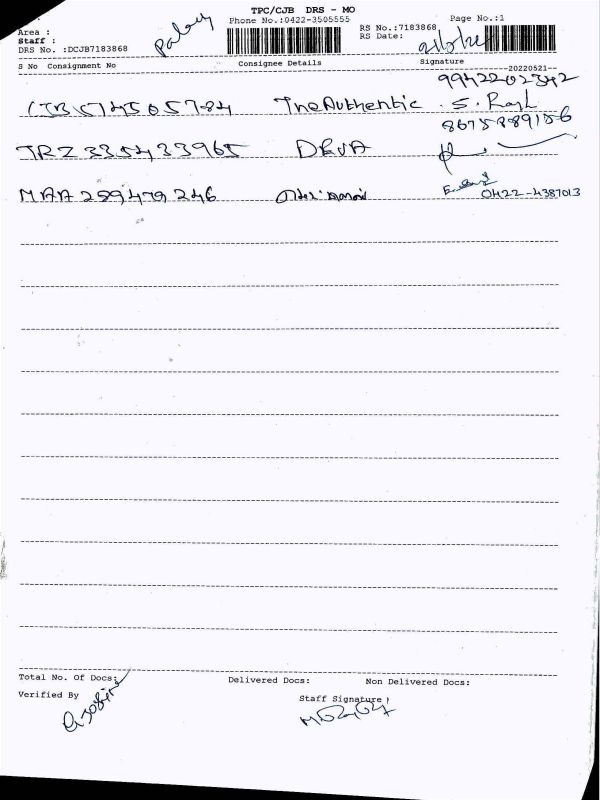 TPC/CJB DRS - MO
Phone No.:0422-3505555
Page No.:1
Area :
Staff :
DRS No. :DCJB7183868
RS No.:7183868
RS Date:
S No Consignment No Consignee Details Signature
--20220521--
9942202342
CJB514505784 The Authentic S.
8675889156
TRZ 335433965 DEVA
MAA 299479246
0422-4387013
Total No. Of Docs: Delivered Docs: Non Delivered Docs:
Verified By Staff Signature